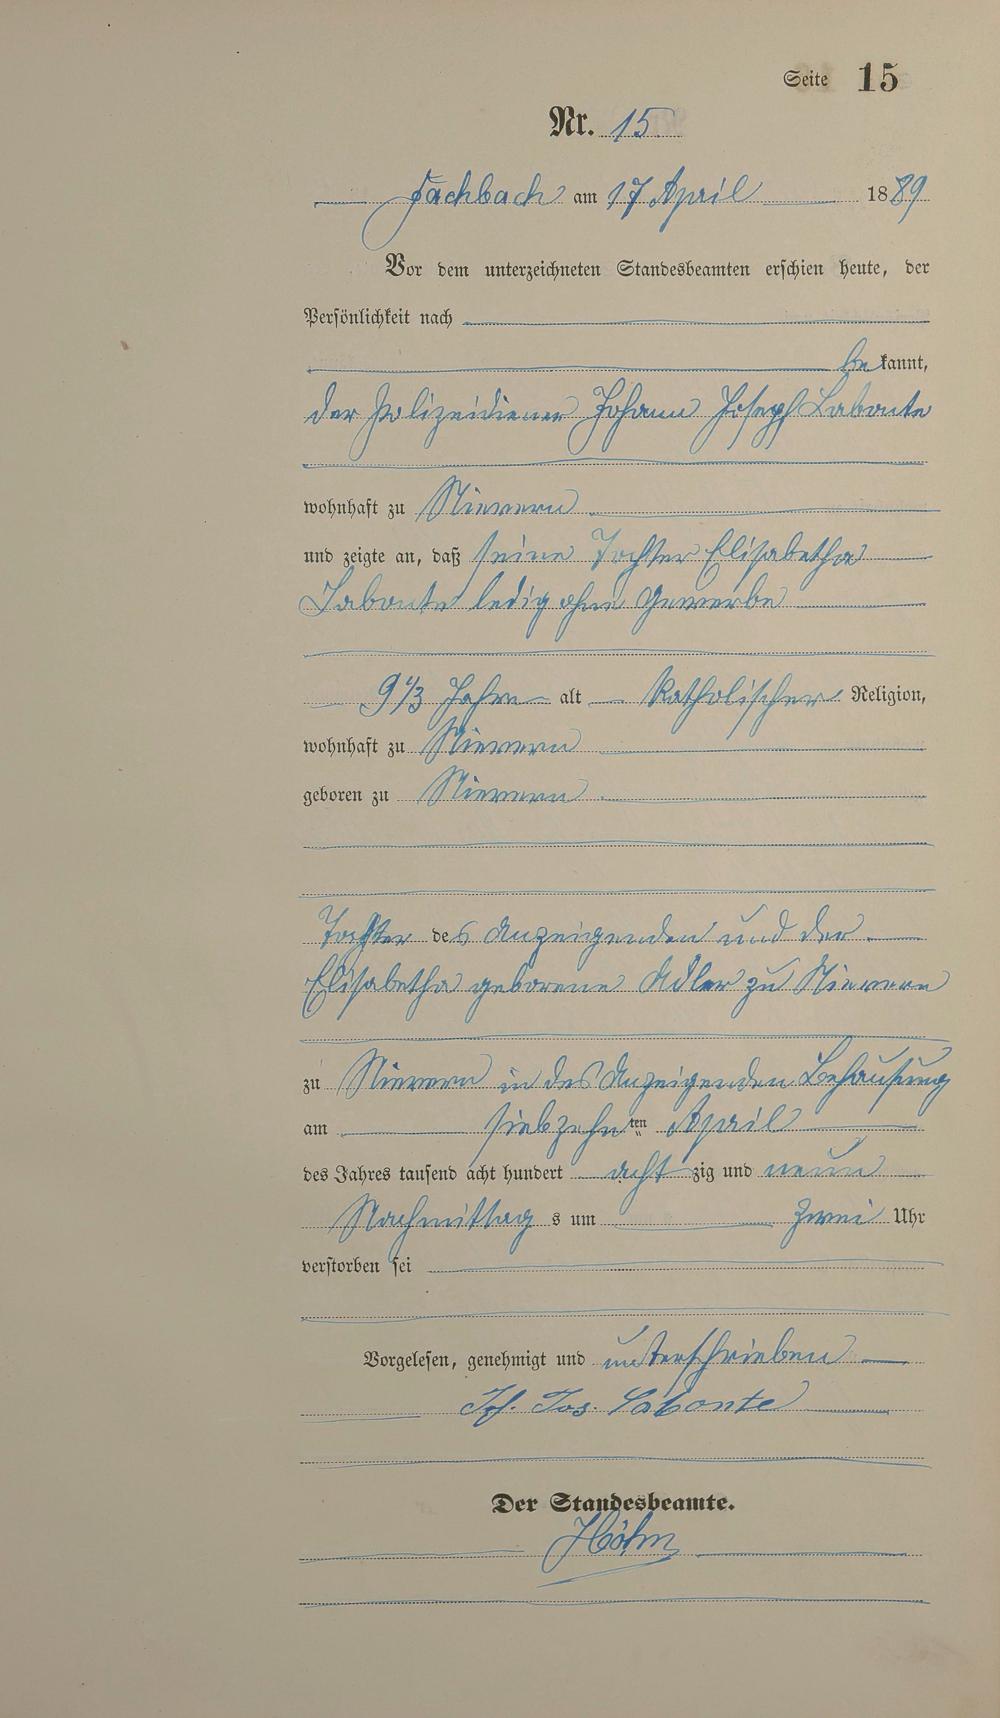 Seite 15
Nr. 15
Fachbach am 17 April 1889
Vor dem unterzeichneten Standesbeamten erschien heute, der
Persönlichkeit nach
bekannt,
der Polizeidiener Johann Joseph Labonte
wohnhaft zu Nievern
und zeigte an, daß seine Tochter Elisabetha
Labonte ledig ohne Gewerbe
9 1/3 Jahre alt katholischer Religion,
wohnhaft zu Nievern
geboren zu Nievern
Tochter des Anzeigenden und der
Elisabetha geborene Adler zu Nievern
zu Nievern in des Anzeigenden Behausung
am siebzehnten April
des Jahres tausend acht hundert achtzig und neun
Nachmittags um zwei Uhr
verstorben sei
Vorgelesen, genehmigt und unterschrieben
Jos. Labonte
Der Standesbeamte.
Höhn